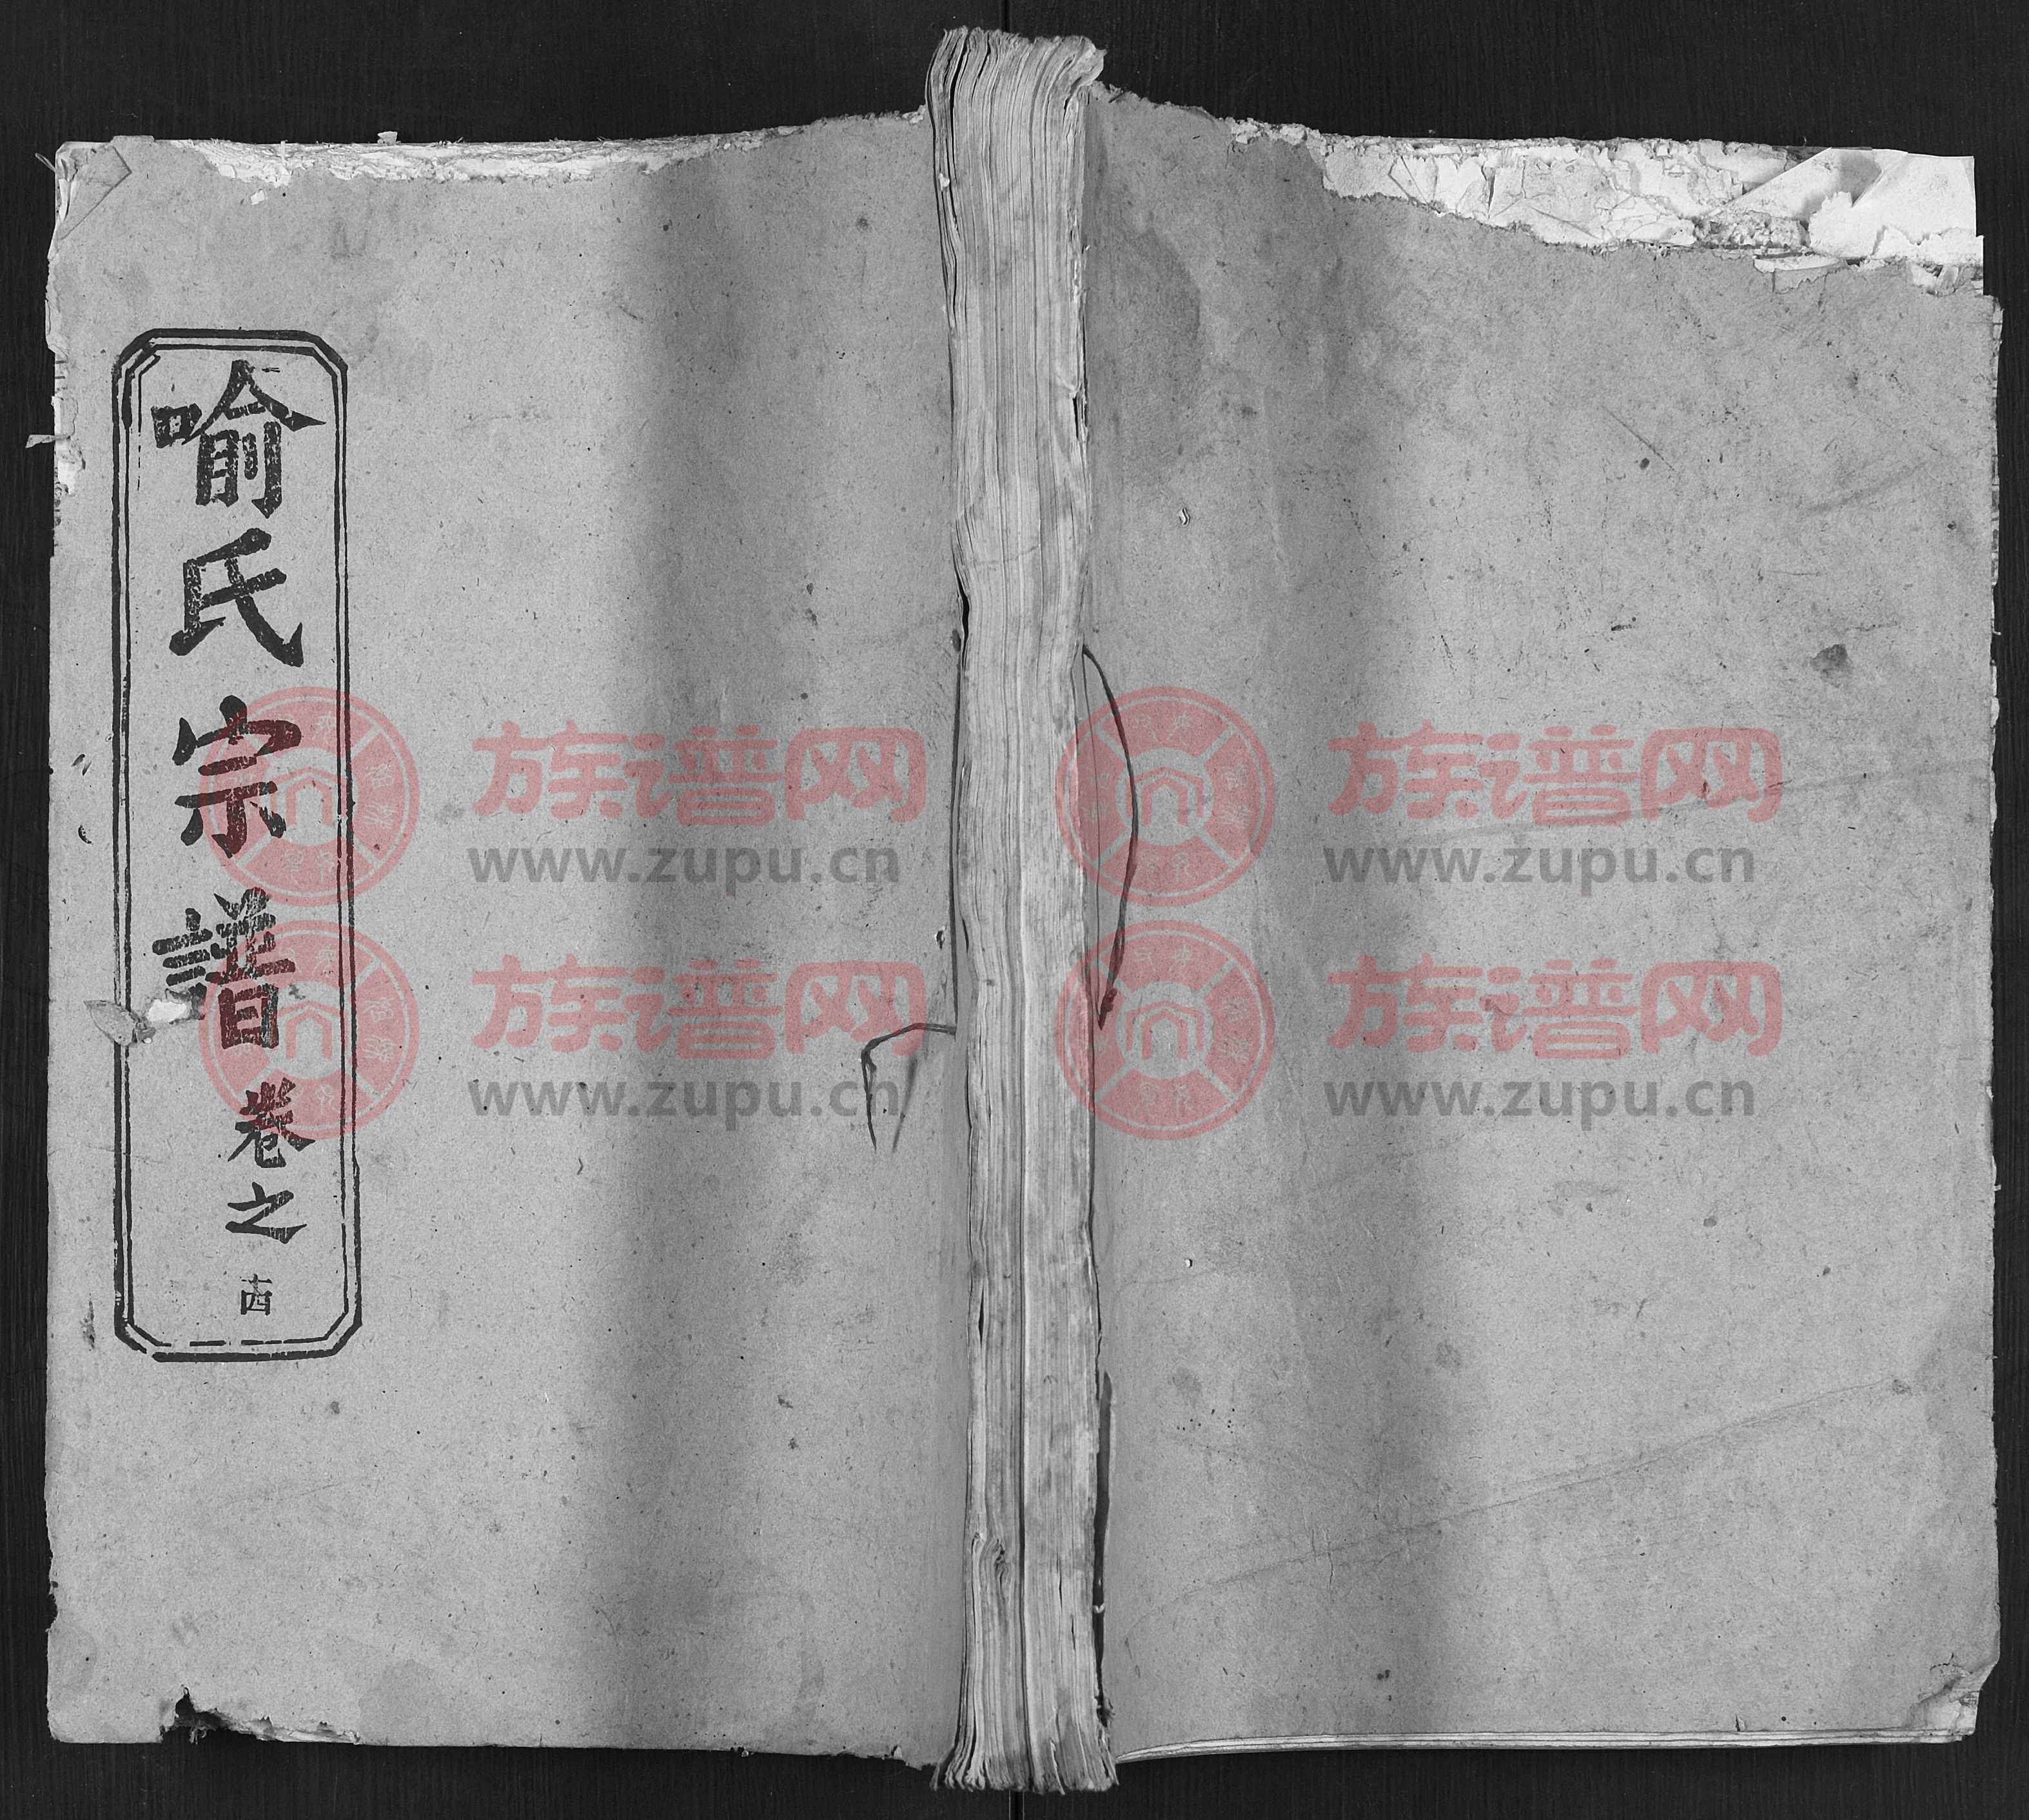 喻氏宗譜卷之
族谱网
www.zupu.cn
族谱网
www.zupu.cn
族谱网
www.zupu.cn
族谱网
www.zupu.cn